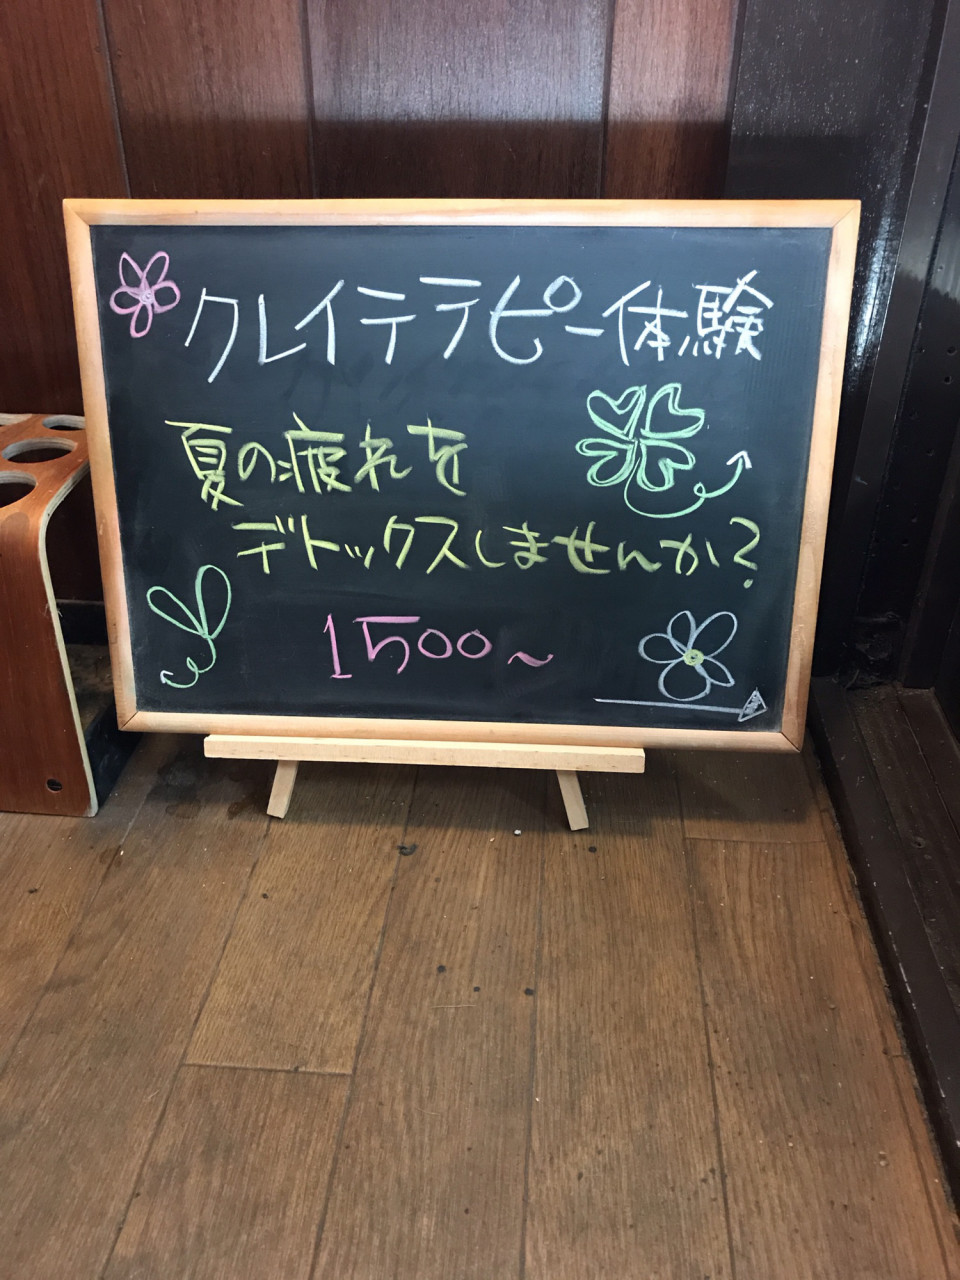 クレイテラピー体験
夏の疲れを
デトックスしませんか?
1500～